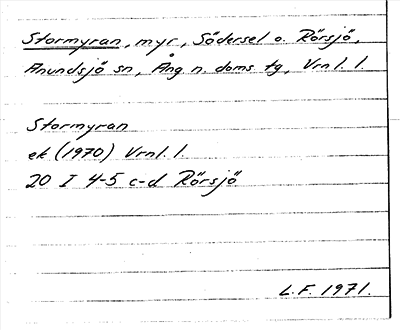 Stormyran, myr, Södersel o. Rörsjö,
Anundsjö sn, Ång n. doms. tg, Vrnl. l.
Stormyran
ek (1970) Vrnl. l.
20 I 4-5 c-d Rörsjö
L.F. 1971.